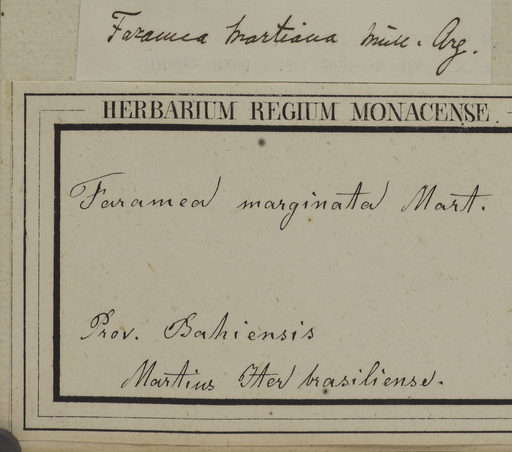 Faramea Martiana Müll. Arg.
HERBARIUM REGIUM MONACENSE.
Faramea marginata Mart.
Prov. Bahiensis
Martius Iter brasiliense.